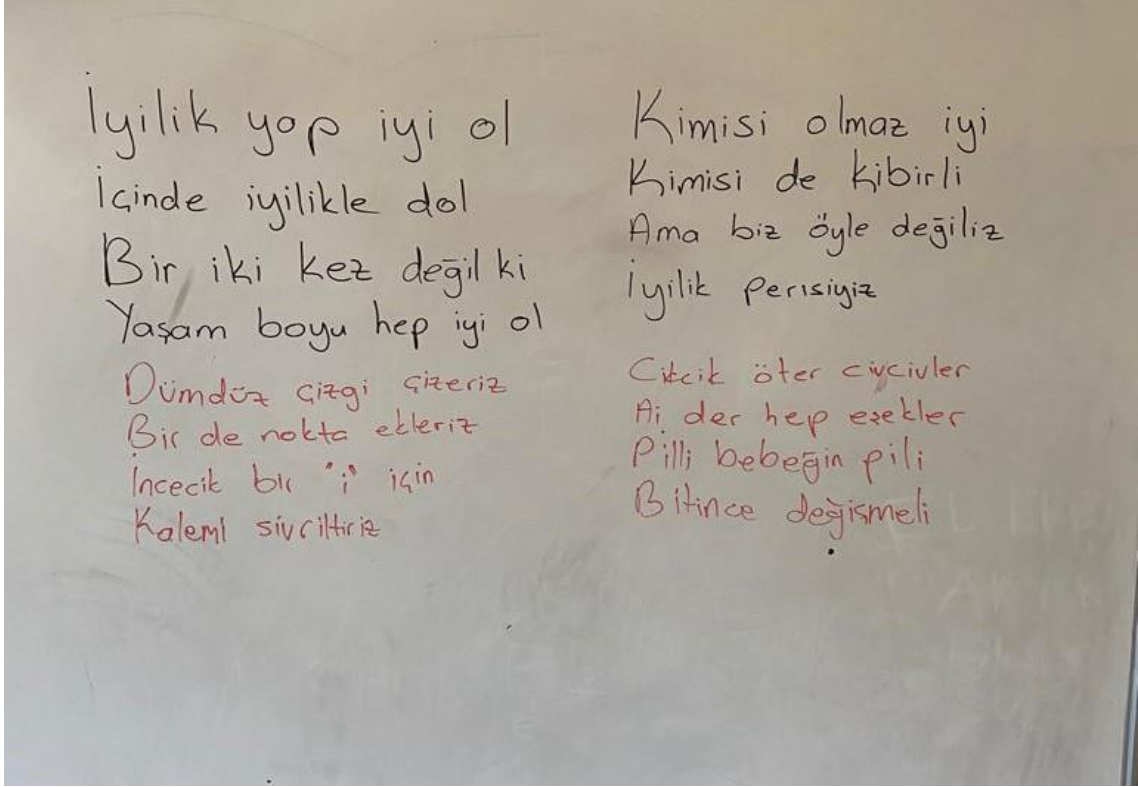 İyilik yap iyi ol
İçinde iyilikle dol
Bir iki kez değil ki
Yaşam boyu hep iyi ol
Dümdüz çizgi çizeriz
Bir de nokta ekleriz
İncecik bir "i" için
Kalemi sivriltiriz
Kimisi olmaz iyi
Kimisi de kibirli
Ama biz öyle değiliz
İyilik perisiyiz
Cikcik öter civcivler
Ai der hep eşekler
Pilli bebeğin pili
Bitince değişmeli